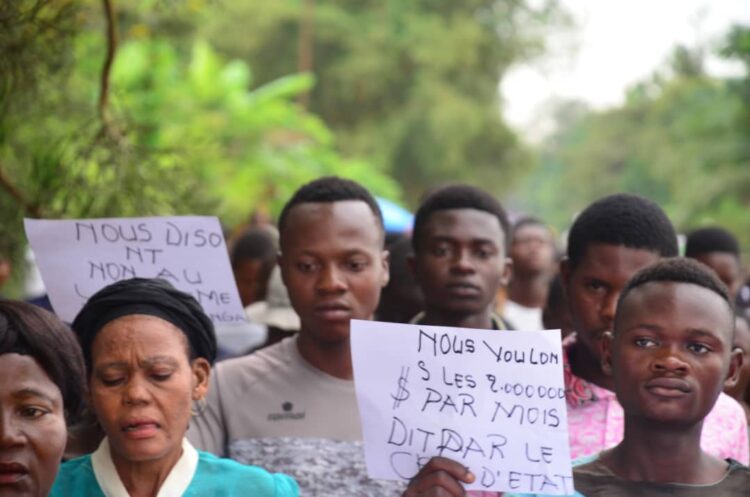 NOUS DISO
NT
NON AU
NOUS VOULON
S LES 2.000000
$ PAR MOIS
DIT PAR LE
D'ETAT